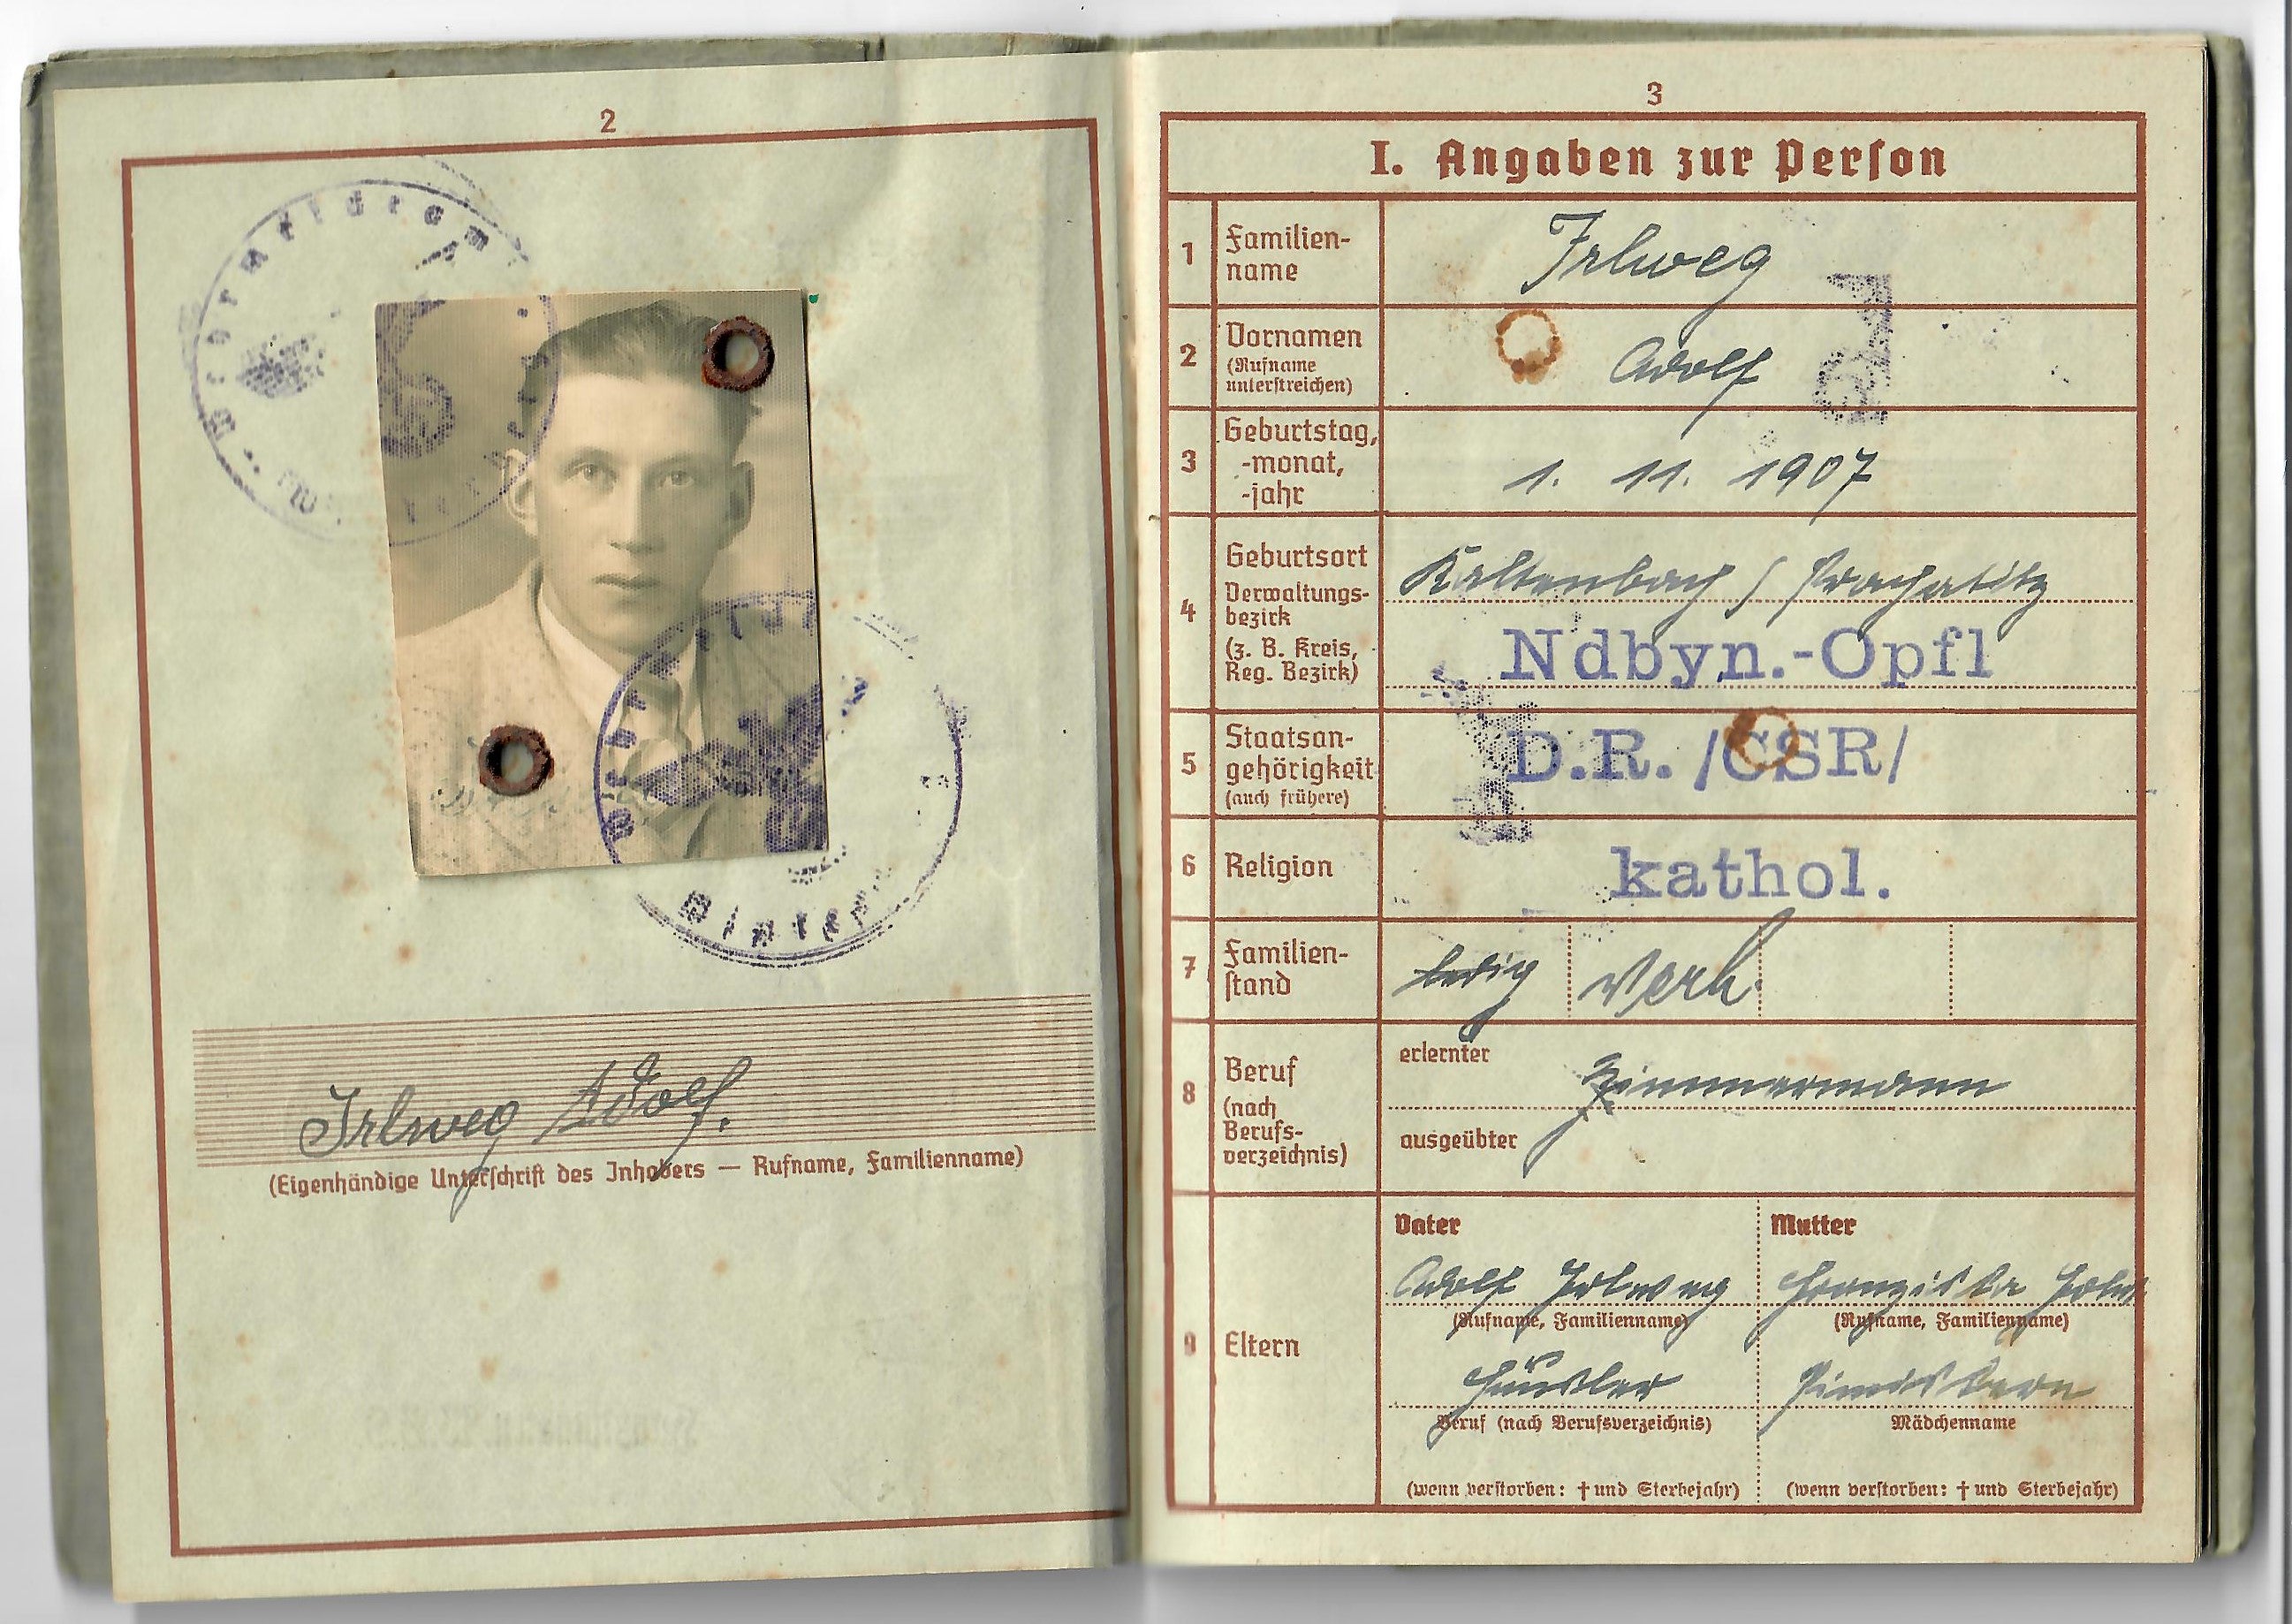 2
Irlweg Adolf.
(Eigenhändige Unterschrift des Inhabers — Rufname, Familienname)
3
I. Angaben zur Perſon
1 Familien-
name
Irlweg
2 Vornamen
(Rufname
unterſtreichen)
Adolf
3 Geburtstag,
-monat,
-jahr
1. 11. 1907
4 Geburtsort
Verwaltungs-
bezirk
(z. B. Kreis,
Reg. Bezirk)
Kaltenbach / Prachatitz
Ndbyn.-Opfl
5 Staatsan-
gehörigkeit
(auch frühere)
D.R. /CSR/
6 Religion
kathol.
7 Familien-
ſtand
ledig verh.
8 Beruf
(nach
Berufs-
verzeichnis)
erlernter
Zimmermann
ausgeübter
9 Eltern
Vater
Adolf Irlweg
(Rufname, Familienname)
Häusler
Beruf (nach Berufsverzeichnis)
(wenn verſtorben: † und Sterbejahr)
Mutter
Franziska
(Rufname, Familienname)
Mädchenname
(wenn verſtorben: † und Sterbejahr)